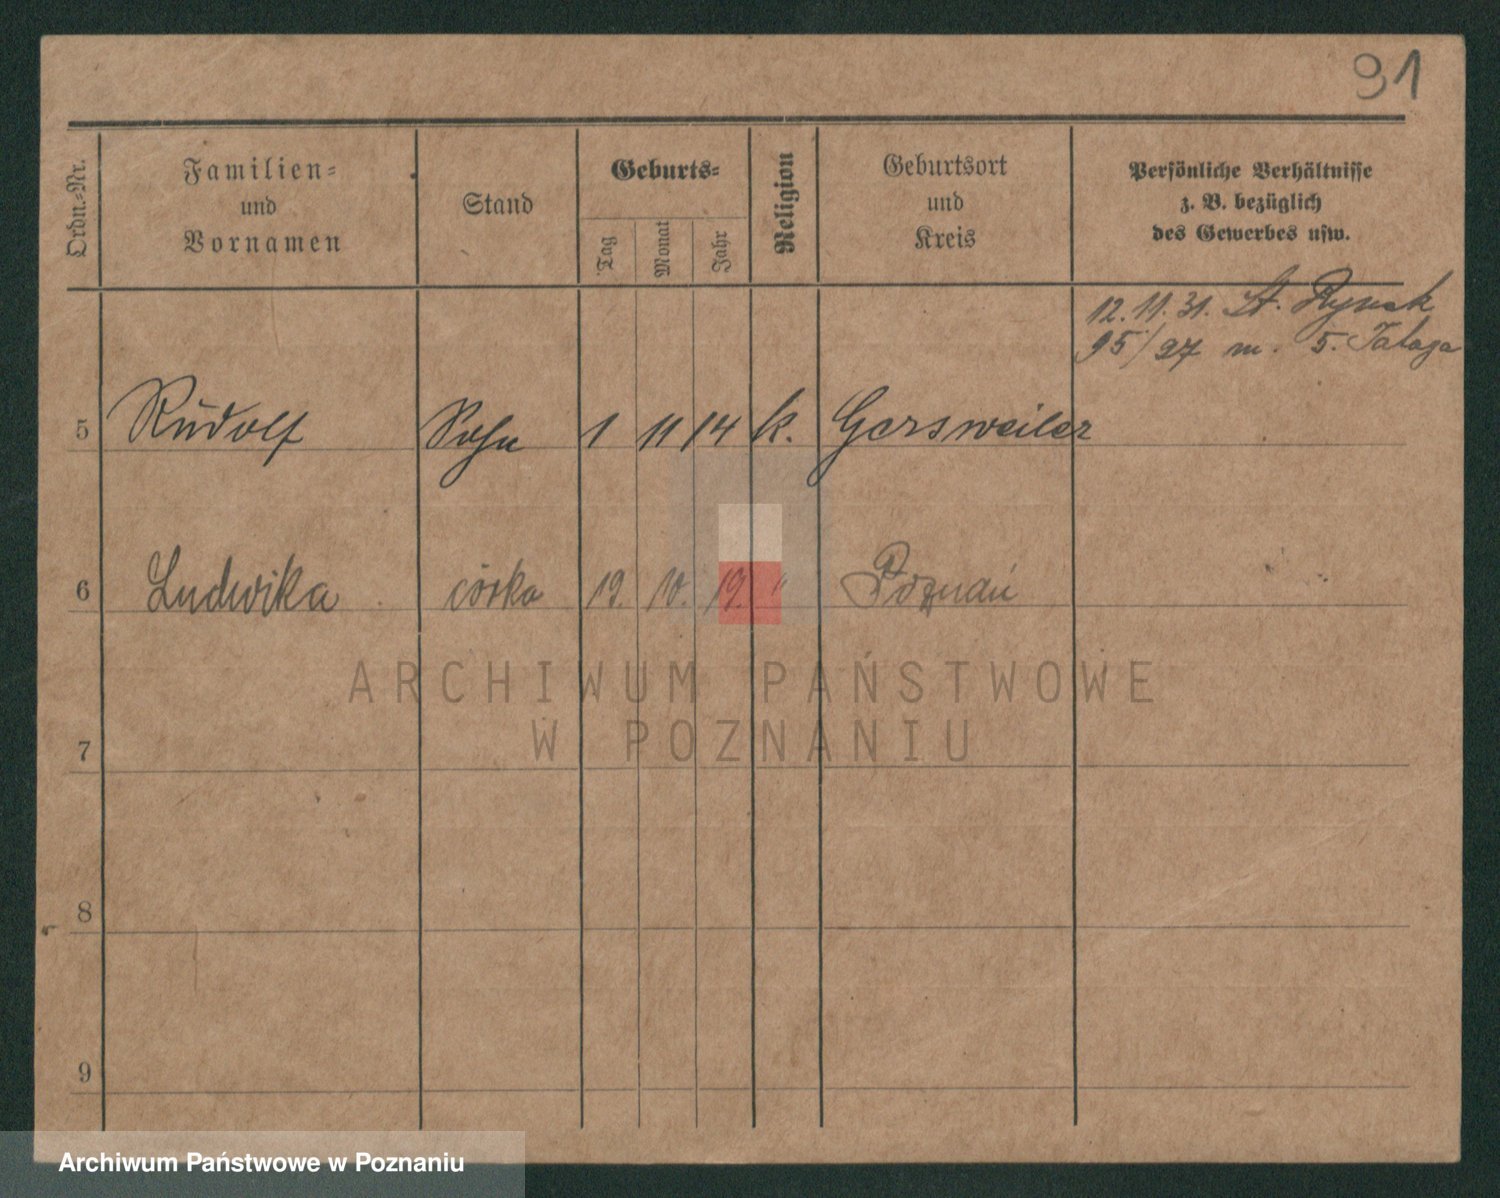 91
Ordn.-Nr.
Familien-
und
Vornamen
Stand
Geburts-
Tag
Monat
Jahr
Religion
Geburtsort
und
Kreis
Persönliche Verhältnisse
z. B. bezüglich
des Gewerbes usw.
12. 11. 31. St. Rynek
95/97 m. 5. Tataga
5 Rudolf Sohn 1 11 14 k. Gersweiler
6 Ludwika córka 19. 10. 19. " Poznań
ARCHIWUM PAŃSTWOWE
W POZNANIU
7
8
9
Archiwum Państwowe w Poznaniu